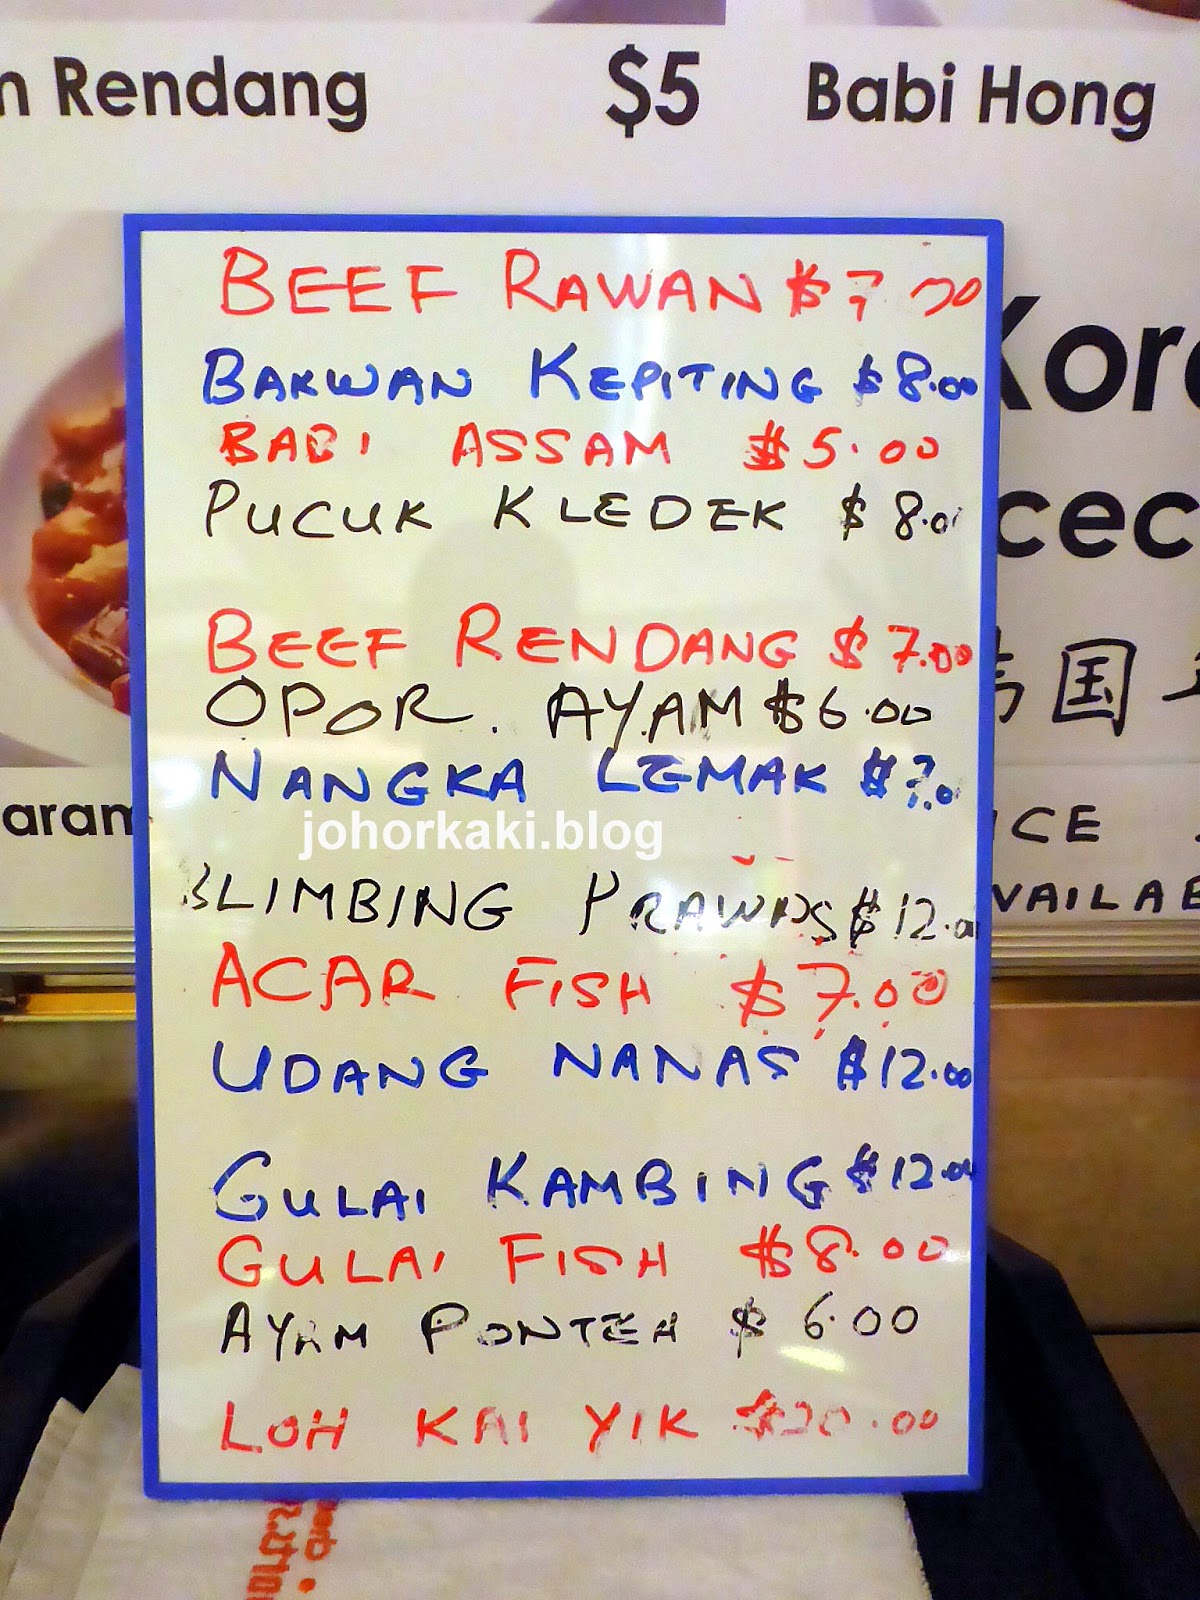 Rendang $5 Babi Hong
BEEF RAWAN $7.00
BAKWAN KEPITING $8.00
BABI ASSAM $5.00
PUCUK KLEDEK $8.0
BEEF RENDANG $7.00
OPOR. AYAM $6.00
NANGKA LEMAK $7.0
johorkaki.blog
BLIMBING PRAWNS $12.00
ACAR FISH $7.00
UDANG NANAS $12.00
GULAI KAMBING $12.00
GULAI FISH $8.00
AYAM PONTEH $6.00
LOH KAI YIK $20.00
国